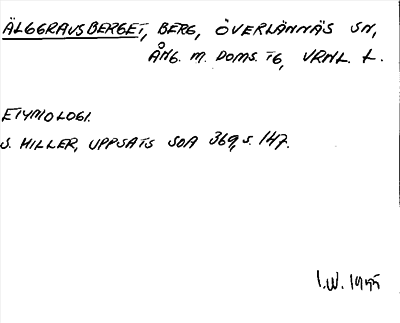 ÄLGGRAVSBERGET, BERG, ÖVERLÄNNÄS SN,
ÅNG. M. DOMS. TG, VRNL. L.
ETYMOLOGI.
S. HILLER, UPPSATS SOA 369, S. 147.
I.W. 19